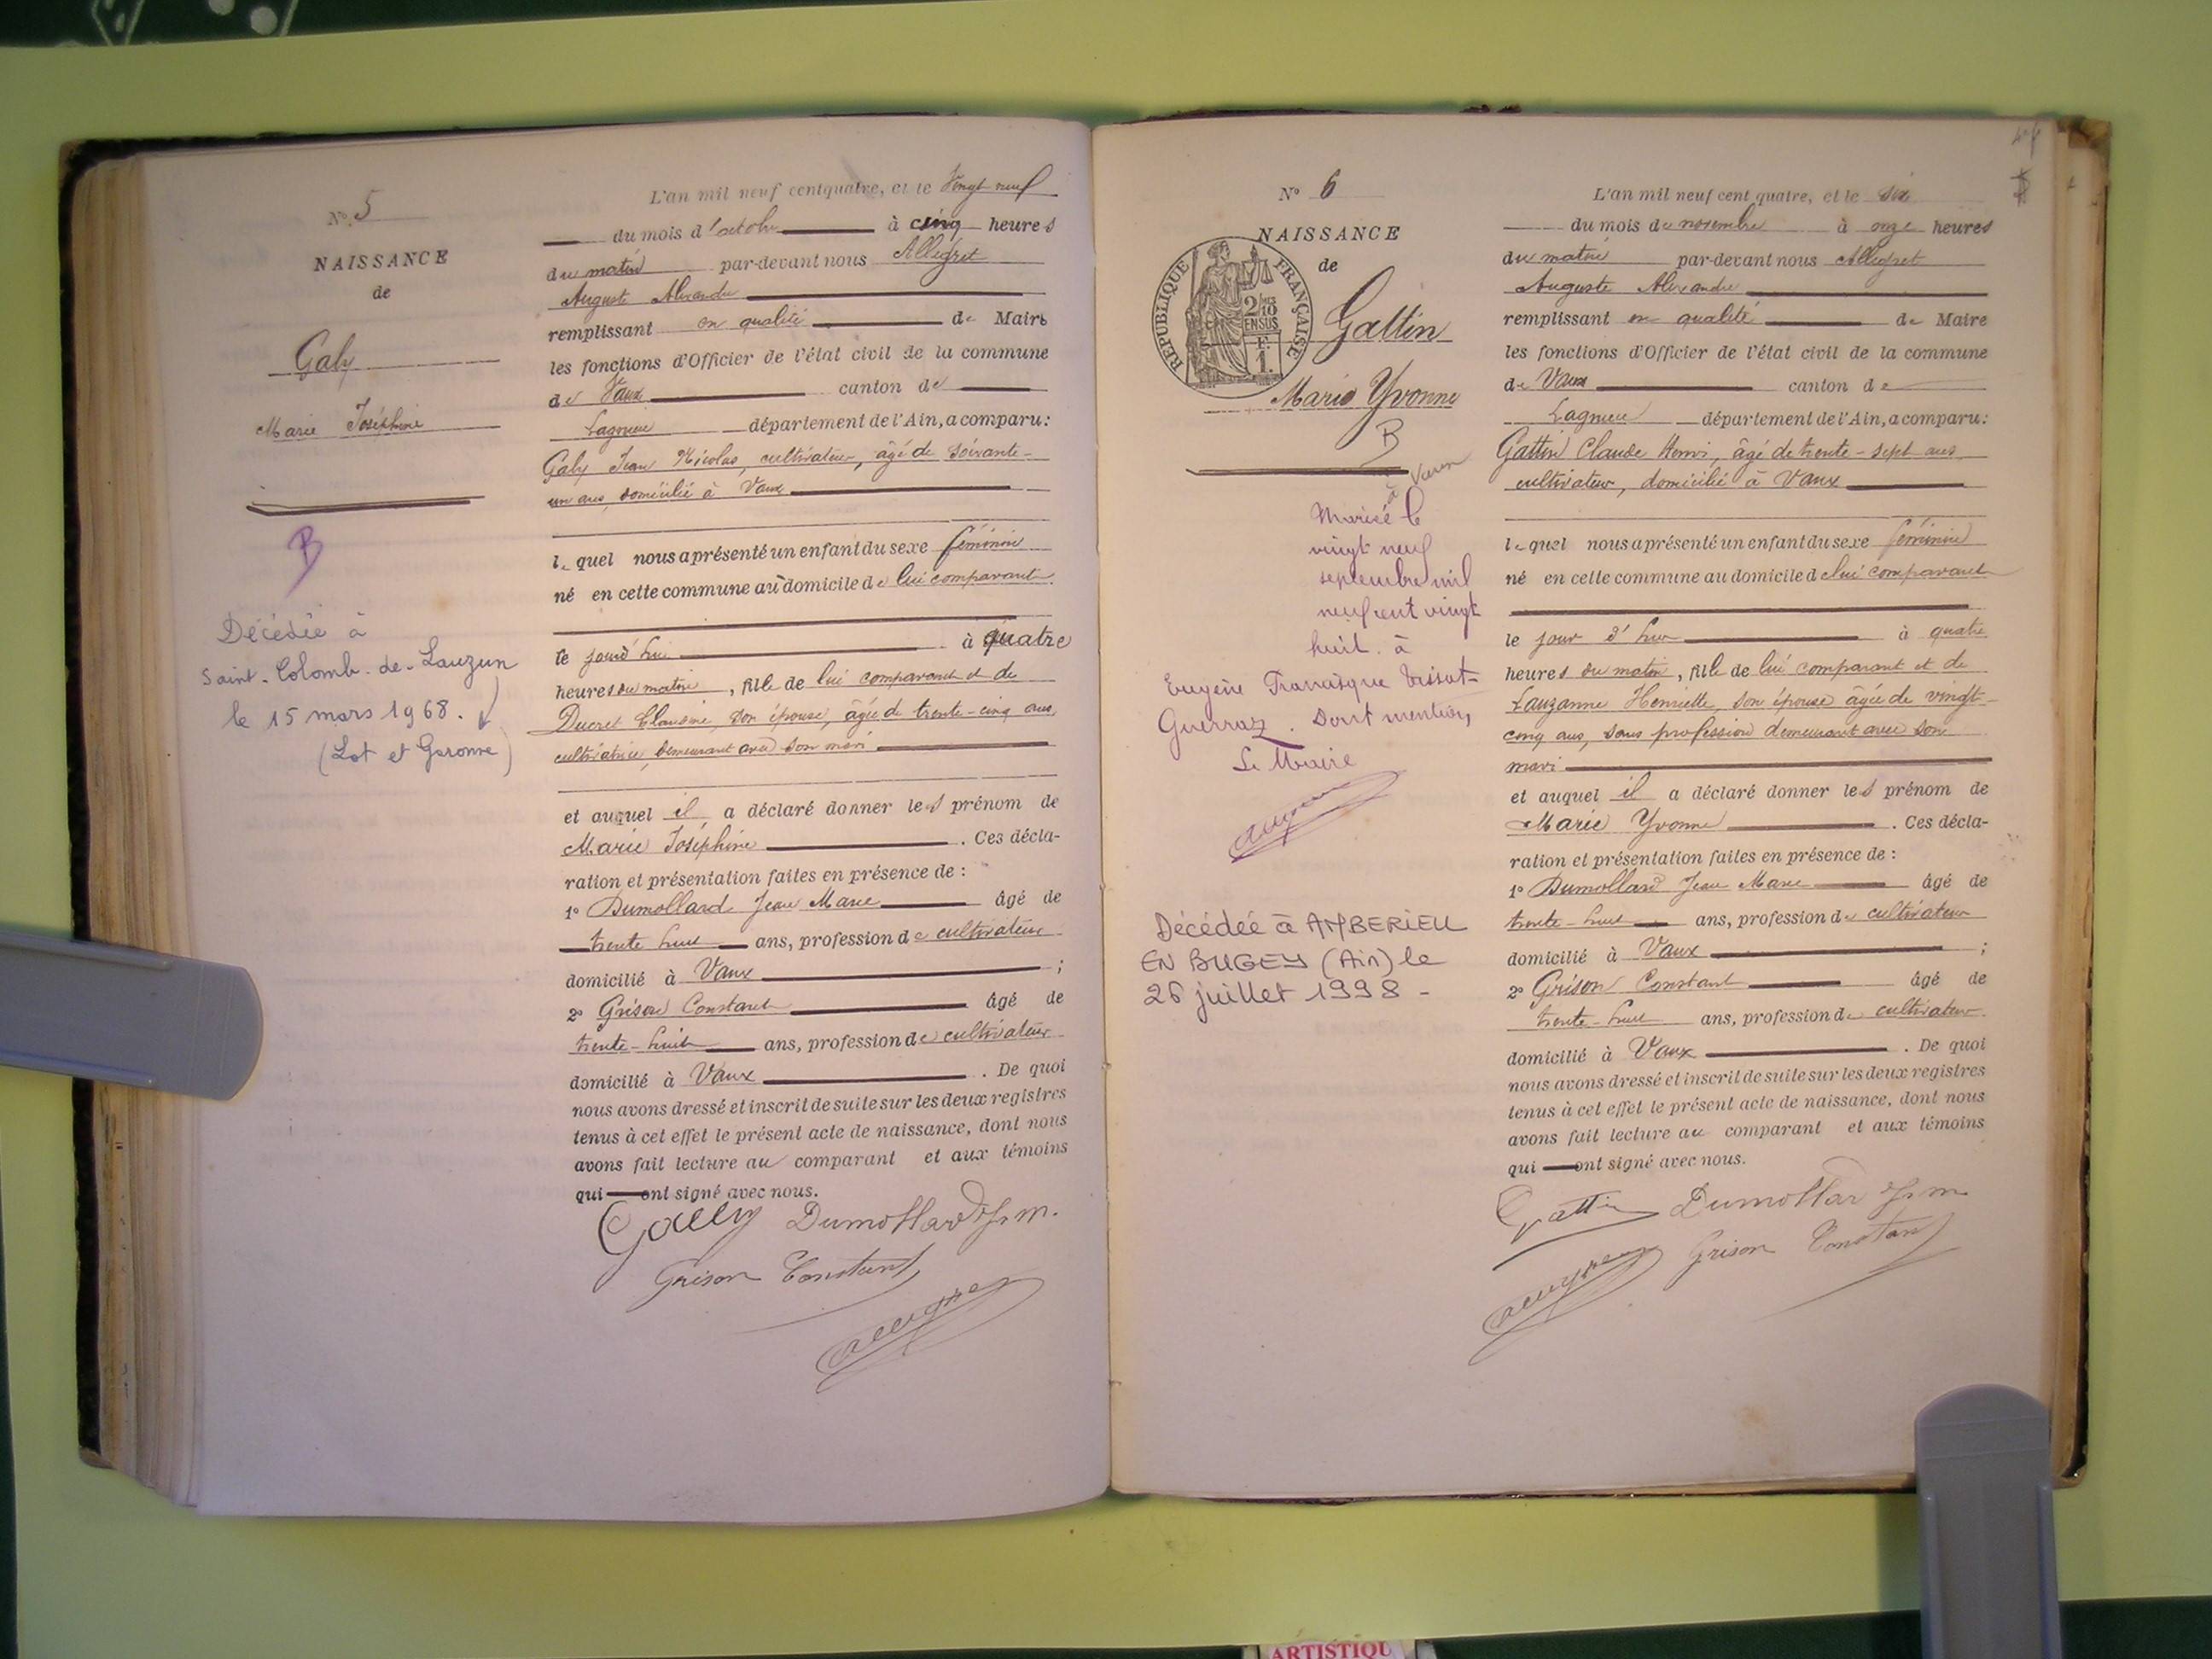 N° 5
NAISSANCE
de
Galy
Marie Joséphine
B
Décédée à
Saint-Colomb-de-Lauzun
le 15 mars 1968.
(Lot et Garonne)
L'an mil neuf cent quatre, et le vingt neuf
du mois d'octobre à cinq heures
du matin par-devant nous Allégret
Auguste Alexandre
remplissant en qualité de Maire
les fonctions d'Officier de l'état civil de la commune
de Vaux canton de
Lagnieu département de l'Ain, a comparu:
Galy Jean Nicolas, cultivateur, âgé de soixante-
un ans, domicilié à Vaux
lequel nous a présenté un enfant du sexe féminin
né en cette commune au domicile de lui comparant
le jourd'hui à quatre
heures du matin, fille de lui comparant et de
Ducret Claudine, son épouse, âgée de trente-cinq ans,
cultivatrice, demeurant avec son mari
et auquel il a déclaré donner les prénom de
Marie Joséphine. Ces décla-
ration et présentation faites en présence de :
1° Dumollard Jean Marie âgé de
trente huit ans, profession de cultivateur
domicilié à Vaux ;
2° Grison Constant âgé de
trente-huit ans, profession de cultivateur
domicilié à Vaux . De quoi
nous avons dressé et inscrit de suite sur les deux registres
tenus à cet effet le présent acte de naissance, dont nous
avons fait lecture au comparant et aux témoins
qui ont signé avec nous.
Gally Dumollard J. m.
Grison Constant
N° 6
NAISSANCE
de
RÉPUBLIQUE FRANÇAISE
2/10
EN SUS
1.
Gattin
Marie Yvonne
B
à Vaux
Mariée le
vingt neuf
septembre mil
neuf cent vingt
huit. à
Eugène Tissot-
Guerraz. Dont mention,
Le Maire
Décédée à AMBERIEU
EN BUGEY (Ain) le
26 juillet 1998 -
L'an mil neuf cent quatre, et le six
du mois de novembre à onze heures
du matin par-devant nous Allégret
Auguste Alexandre
remplissant en qualité de Maire
les fonctions d'Officier de l'état civil de la commune
de Vaux canton de
Lagnieu département de l'Ain, a comparu:
Gattin Claude Henri, âgé de trente-sept ans
cultivateur, domicilié à Vaux
lequel nous a présenté un enfant du sexe féminin
né en cette commune au domicile de lui comparant
le jour d'hui à quatre
heures du matin, fille de lui comparant et de
Lauzanne Henriette, son épouse âgée de vingt-
cinq ans, sans profession demeurant avec son
mari
et auquel il a déclaré donner les prénom de
Marie Yvonne . Ces décla-
ration et présentation faites en présence de :
1° Dumollard Jean Marie âgé de
trente-huit ans, profession de cultivateur
domicilié à Vaux ;
2° Grison Constant âgé de
trente-huit ans, profession de cultivateur
domicilié à Vaux . De quoi
nous avons dressé et inscrit de suite sur les deux registres
tenus à cet effet le présent acte de naissance, dont nous
avons fait lecture au comparant et aux témoins
qui ont signé avec nous.
Gattin Dumollard J. m.
Grison Constant
ARTISTIQU